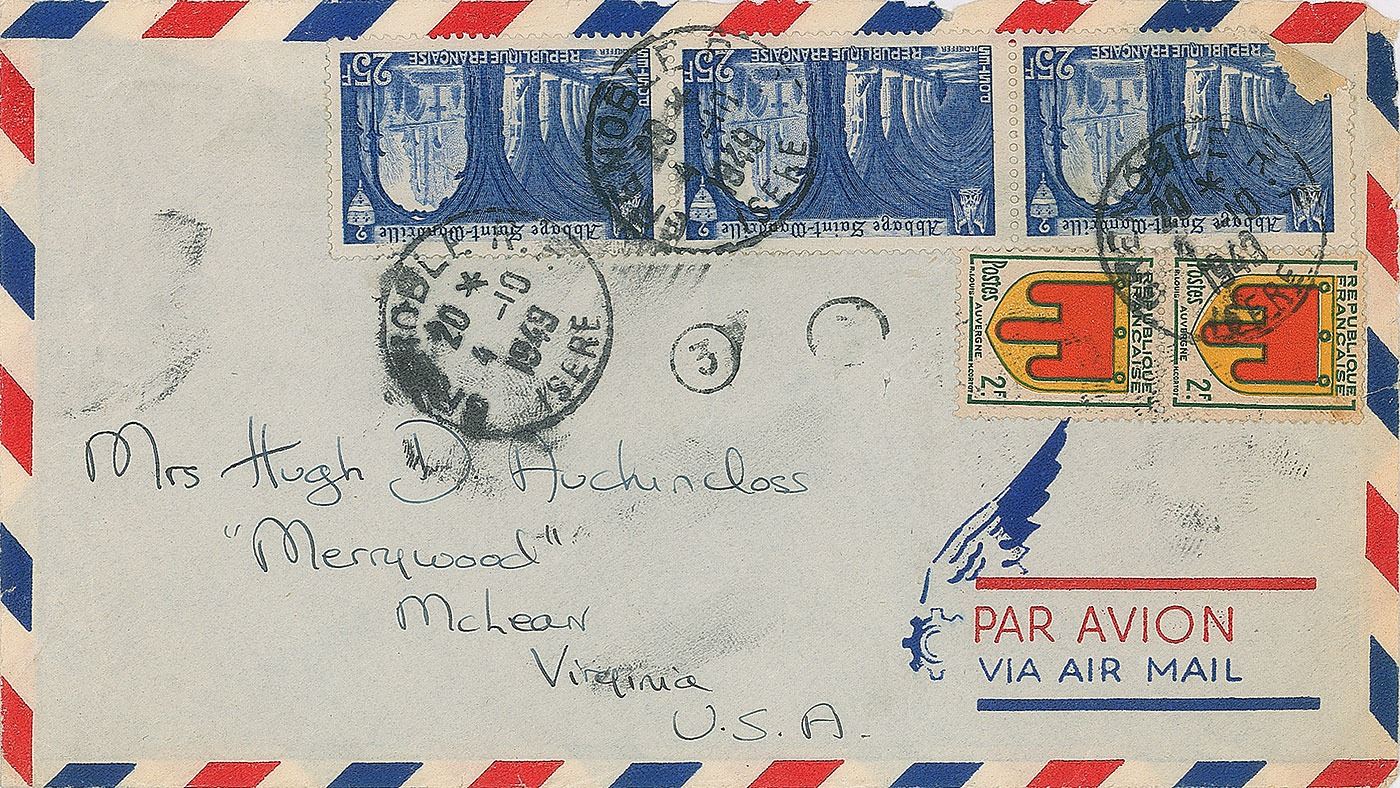 25F
REPUBLIQUE FRANÇAISE
Abbaye Saint-Wandrille
25F
REPUBLIQUE FRANÇAISE
Abbaye Saint-Wandrille
25F
REPUBLIQUE FRANÇAISE
Abbaye Saint-Wandrille
20 *
4 -10
1949
ISERE
20 *
4 -10
1949
ISERE
3
REPUBLIQUE
FRANÇAISE
Postes
R.LOUIS AUVERGNE H.CORTOT
2F
REPUBLIQUE
FRANÇAISE
Postes
R.LOUIS AUVERGNE H.CORTOT
2F
Mrs Hugh D Auchincloss
"Merrywood"
McLean
Virginia
U.S.A.
PAR AVION
VIA AIR MAIL